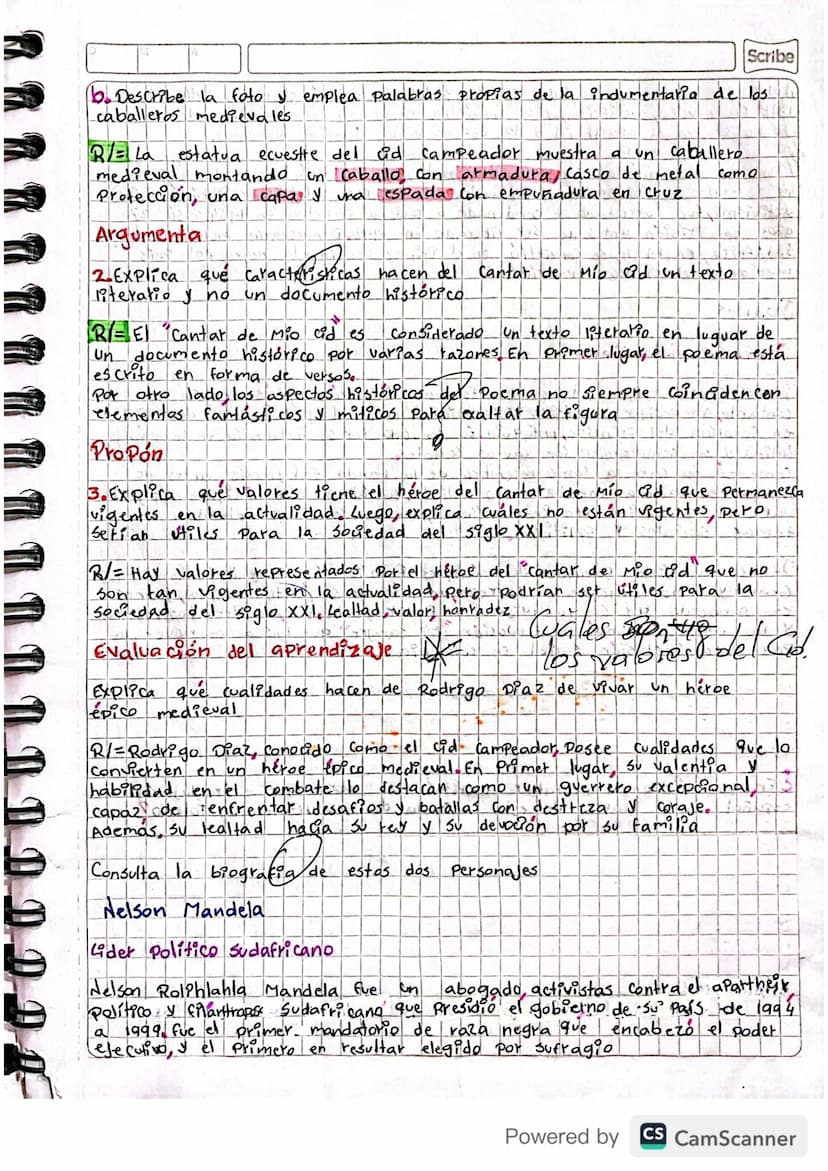 D M A
Scribe
b. Describe la foto y emplea palabras propias de la indumentaria de los
caballeros medievales
R/= La estatua ecuestre del cid campeador muestra a un caballero
medieval montando un caballo, con armadura, casco de metal como
Protección, una capa y una espada con empuñadura en cruz
Argumenta
2. Explica qué características hacen del cantar de Mío cid un texto
literario y no un documento histórico
R/= El "Cantar de Mío cid" es considerado un texto literario en luguar de
un documento histórico por varias razones. En primer lugar, el poema está
escrito en forma de versos.
Por otro lado, los aspectos históricos del Poema no siempre coinciden con
elementos fantásticos y míticos para exaltar la figura
Propón
3. Explica qué valores tiene el héroe del cantar de Mío cid que permanezca
vigentes en la actualidad. Luego, explica cuáles no están vigentes, pero,
serían útiles para la sociedad del siglo XXI
R/= Hay valores representados por el héroe del "cantar de Mío cid" que no
son tan vigentes en la actualidad, pero podrían ser útiles para la
sociedad del siglo XXI. Lealtad, valor, honradez
Cuáles son
los valores del Cid.
Evaluación del aprendizaje
Explica qué cualidades hacen de Rodrigo Díaz de vivar un héroe
épico medieval
R/= Rodrigo Díaz, conocido como el cid campeador, Posee cualidades que lo
convierten en un héroe épico medieval. En Primer lugar, su valentía y
habilidad en el combate lo destacan como un guerrero excepcional,
capaz de enfrentar desafíos y batallas con destreza y coraje.
Además, su lealtad hacia su rey y su devoción por su familia
Consulta la biografía de estos dos personajes
Nelson Mandela
Líder Político Sudafricano
Nelson Rolphlahla Mandela fue un abogado, activistas contra el apartheir,
político y filántropo sudafricano que presidió el gobierno de su País de 1994
a 1999, fue el primer mandatorio de raza negra que encabezó el poder
ejecutivo, y el primero en resultar elegido por sufragio
Powered by CS CamScanner